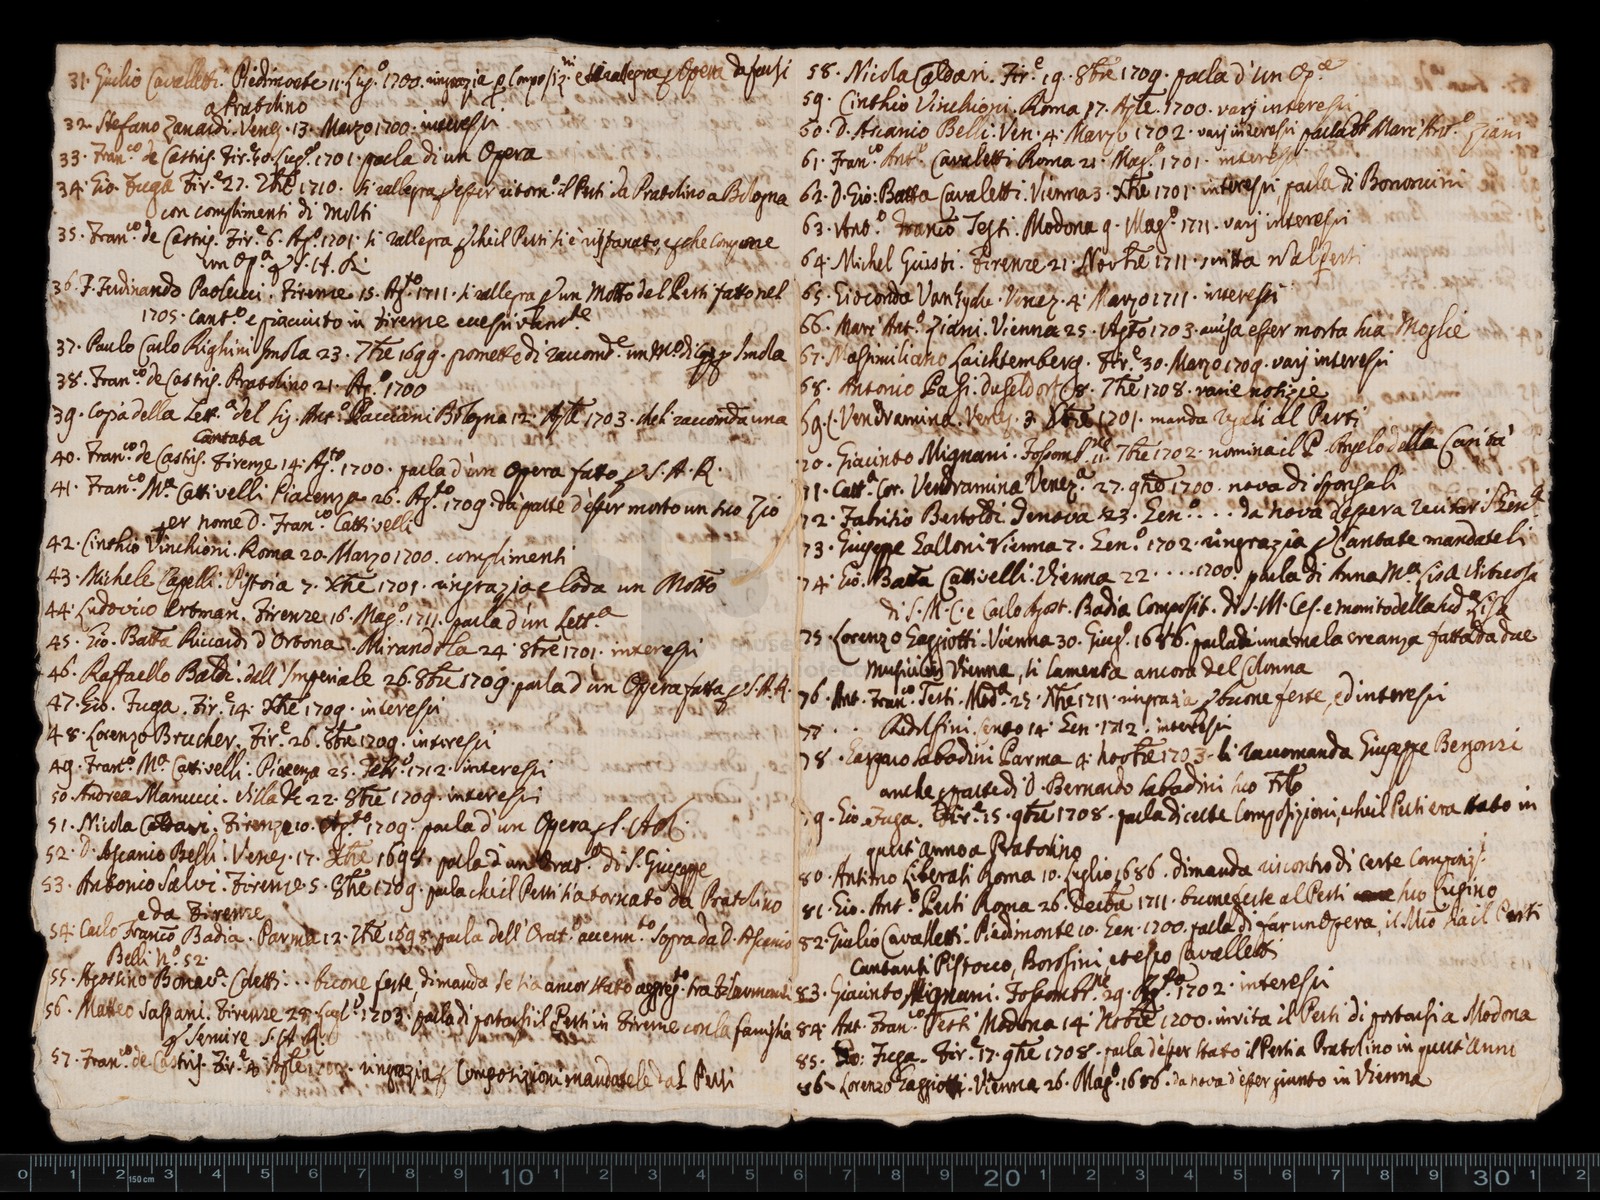 31. Giulio Cavalletti. Piedimonte 11. Lug.o 1700. ringrazia p Composiz.ni e si rallegra p Opera da farsi
a Pratolino
32. Stefano Zanardi. Venez. 13. Marzo 1700. interessi
33. Fran.co de Castris. Fir.e Lug.o 1701. parla di un Opera
34. Gio. Fuga Fir.e 27. 7bre 1710. si rallegra p esser ritorn.o il Perti da Pratolino a Bologna
con complimenti di molti
35. Fran.co de Castris. Fir.e 6. Ag.o 1701. si rallegra p che il Perti si è risanato, e che Compone
un Op.a p S. A. R.
36. F. Ferdinando Paolucci. Firenze 15. Ag.to 1711. si rallegra p un Motto del Perti fatto nel
1705. cant.o e piaciuto in Firenze
37. Paulo Carlo Righini Imola 23. 7bre 1699. promette di raccomd.e un M.o di Capp Imola
38. Fran.co de Castris. Pratolino 21. Ag.o 1700
39. Copia della Lett.a del Sig. Ant.o Paccioni Bologna 12. Aple 1703. che li raccomda una
Cantata
40. Fran.co de Castris. Firenze 14. Ag.to 1700. parla d'un Opera fatta p S. A. R.
41. Fran.co M.a Cattivelli Piacenza 26. Ag.to 1709. dà parte d'esser morto un suo Zio
per nome D. Fran.co Cattivelli
42. Cinthio Vinchioni. Roma 20. Marzo 1700. complimenti
43. Michele Capelli. Pistoia 7. Xbre 1701. ringrazia e loda un Motto
44. Ludovico Ertman. Firenze 16. Mag.o 1711. parla d'un Lett.a
45. Gio. Batta Riccardi d'Ortona. Mirandola 24. 8bre 1701. interessi
46. Raffaello Baldi. dall'Imperiale 26. 8bre 1709. parla d'un Opera fatta p S. A. R.
47. Gio. Fuga. Fir.e 14. Xbre 1709. interessi
48. Lorenzo Brucher. Fir.e 26. 8bre 1709. interessi
49. Fran.co M.a Cattivelli. Piacenza 25. Feb.o 1712. interessi
50. Andrea Manucci. Villa 22. 8bre 1709. interessi
51. Nicola Caldari. Firenze 10. Ag.to 1709. parla d'un Opera p S. A. R.
52. D. Ascanio Belli. Venez. 17. Xbre 1698. parla d'un Orat.o di S. Giuseppe
53. Antonio Salvi. Firenze 5. 8bre 1709. parla che il Perti sia tornato da Pratolino
e da Firenze
54. Carlo Franco Badia. Parma 12. 7bre 1698. parla dell'Orat.o accenn.to sopra da D. Ascanio
Belli N.o 52.
55. Agostino Bonav.a Coletti... buone feste, dimanda se sia ancor stato aggreg.to tra Filarmonici
56. Matteo Sassani. Firenze 28. Lugl.o 1703. parla di portarsi il Perti in Firenze con la famiglia
p servire S. A. R.
57. Fran.co de Castris. Fir.e Aple ringrazia p Composizioni mandatele dal Perti
58. Nicola Caldari. Fir.e 19. 8bre 1709. parla d'un Op.a
59. Cinthio Vinchioni. Roma 17. Aple. 1700. varj interessi
60. D. Ascanio Belli. Ven. 4. Marzo 1702. varj interessi parla di Marc'Ant.o Ziani
61. Fran.co Ant.o Cavaletti Roma 21. Mag.o 1701. interessi
62. D. Gio: Batta Cavaletti. Vienna 3. Xbre 1701. interessi, parla di Bononcini
63. Ant.o Franco Testi. Modona 9. Mag.o 1711. varj interessi
64. Michel Giusti. Firenze 21. Novbre 1711.
65. Gioconda Vanzyche. Venez. 4. Marzo 1711. interessi
66. Marc'Ant.o Ziani. Vienna 25. Agto 1703. avisa esser morta sua Moglie
67. Massimiliano Laichtemberg. Fir.e 30. Marzo 1709. varj interessi
68. Antonio Passi. Duseldorf 8. 7bre 1708. varie notizie
69. C. Vendramina. Venez. 3. Xbre 1701. manda regali al Perti
70. Giacinto Mignani. Fossomb.ne 11. 7bre 1702. nomina il P. Angelo della Carità
71. Catt.a Cor. Vendramina Venez.a 27. 9bre 1700. nova di sponsali
72. Fabritio Bertoldi. Genova 23. Gen.o .... da nova d'opera
73. Giuseppe Galloni Vienna 7. Gen.o 1702. ringrazia p Cantate mandateli
74. Gio. Batta Cattivelli. Vienna 22 .... 1700. parla di Anna M.a Lisa Virtuosa
di S. M. C. e Carlo Agost. Badia Composit. di S. M. Ces. e marito della sud.a Lisa
75. Lorenzo Gaggiotti. Vienna 30. Giug.o 1686. parla di una mala creanza fatta da due
Musici in Vienna, si lamenta ancora del Colonna
76. Ant. Fran.co Testi. Mod.a 25. Xbre 1711. ringrazia p buone feste, ed interessi
77. . . Ridolfini. Cento 14. Gen. 1712. interessi
78. Gasparo Sabadini Parma 4. Novbre 1703. li raccomanda Giuseppe Bergonzi
anche p parte di D. Bernardo Sabadini suo Fr.llo
79. Gio. Fuga. Fir.e 15. 9bre 1708. parla di certe Composizioni, e che il Perti era stato in
quest'anno a Pratolino
80. Antimo Liberati Roma 10. Luglio 1686. dimanda riscontro di certe Composiz.
81. Gio. Ant.o Perti Roma 26. Decbre 1711. buone feste al Perti suo Cugino
82. Giulio Cavalletti. Piedimonte 10. Gen. 1700. parla di far un Opera, il Mro sia il Perti
Cantanti Pistocco, Borosini e esso Cavalletti
83. Giacinto Mignani. Fossombr.ne 29. Ag.to 1702. interessi
84. Ant. Fran.co Testi Modona 14. Novbre 1700. invita il Perti di portarsi a Modona
85. Gio: Fuga. Fir.e 17. 9bre 1708. parla d'esser stato il Perti a Pratolino in quest'anni
86. Lorenzo Gaggiotti. Vienna 26. Mag.o 1686. da nova d'esser giunto in Vienna
0 1 2 3 4 5 6 7 8 9 10 1 2 3 4 5 6 7 8 9 20 1 2 3 4 5 6 7 8 9 30 1 2
150 cm